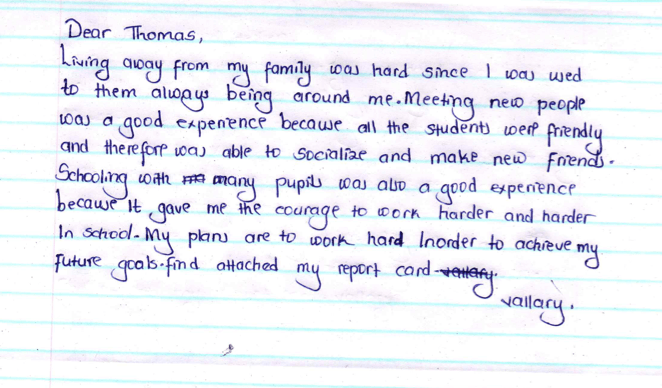 Dear Thomas,
Living away from my family was hard since I was used
to them always being around me. Meeting new people
was a good experience because all the students were friendly
and therefore was able to socialize and make new friends.
Schooling with many pupils was also a good experience
because it gave me the courage to work harder and harder
In school. My plans are to work hard Inorder to achieve my
future goals. find attached my report card. vallary.
vallary.